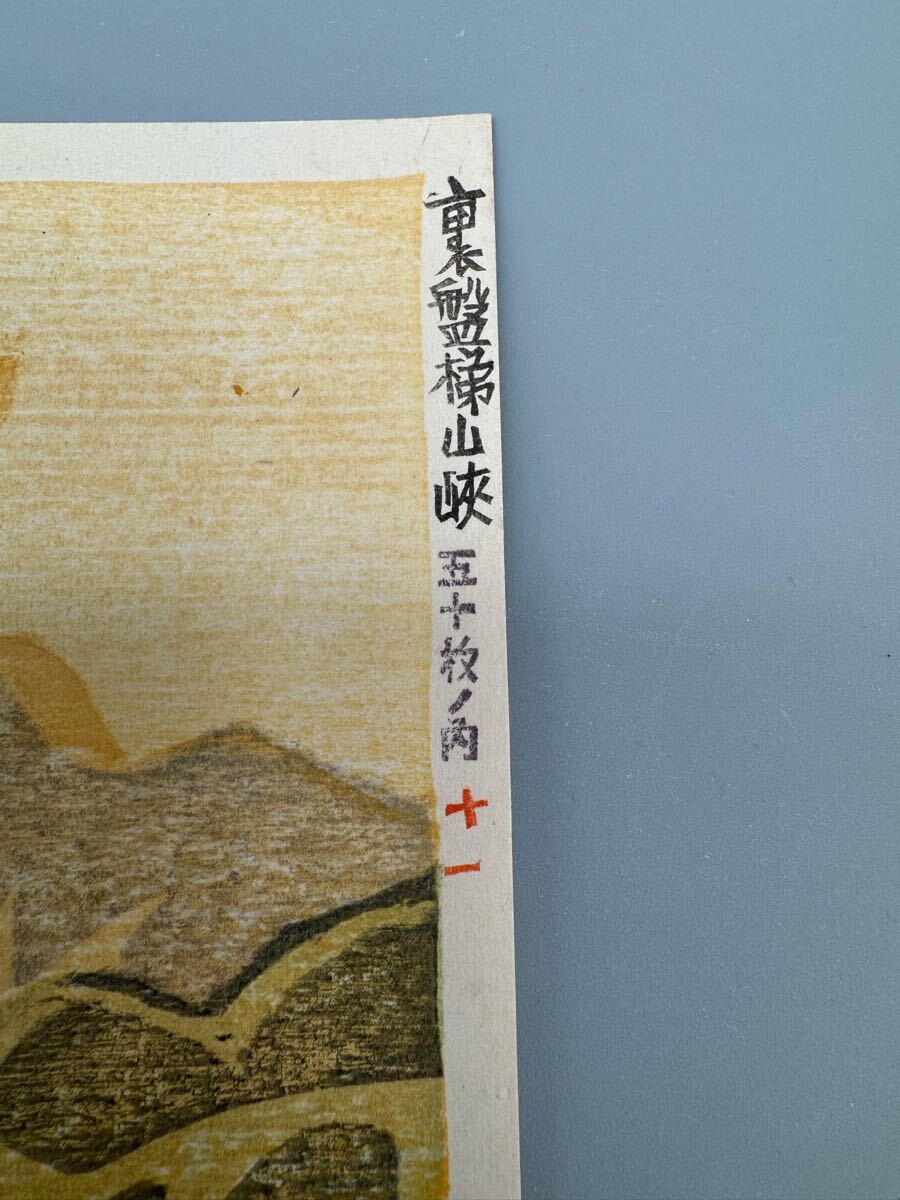 裏盤梯山峡 五十枚ノ内 十一